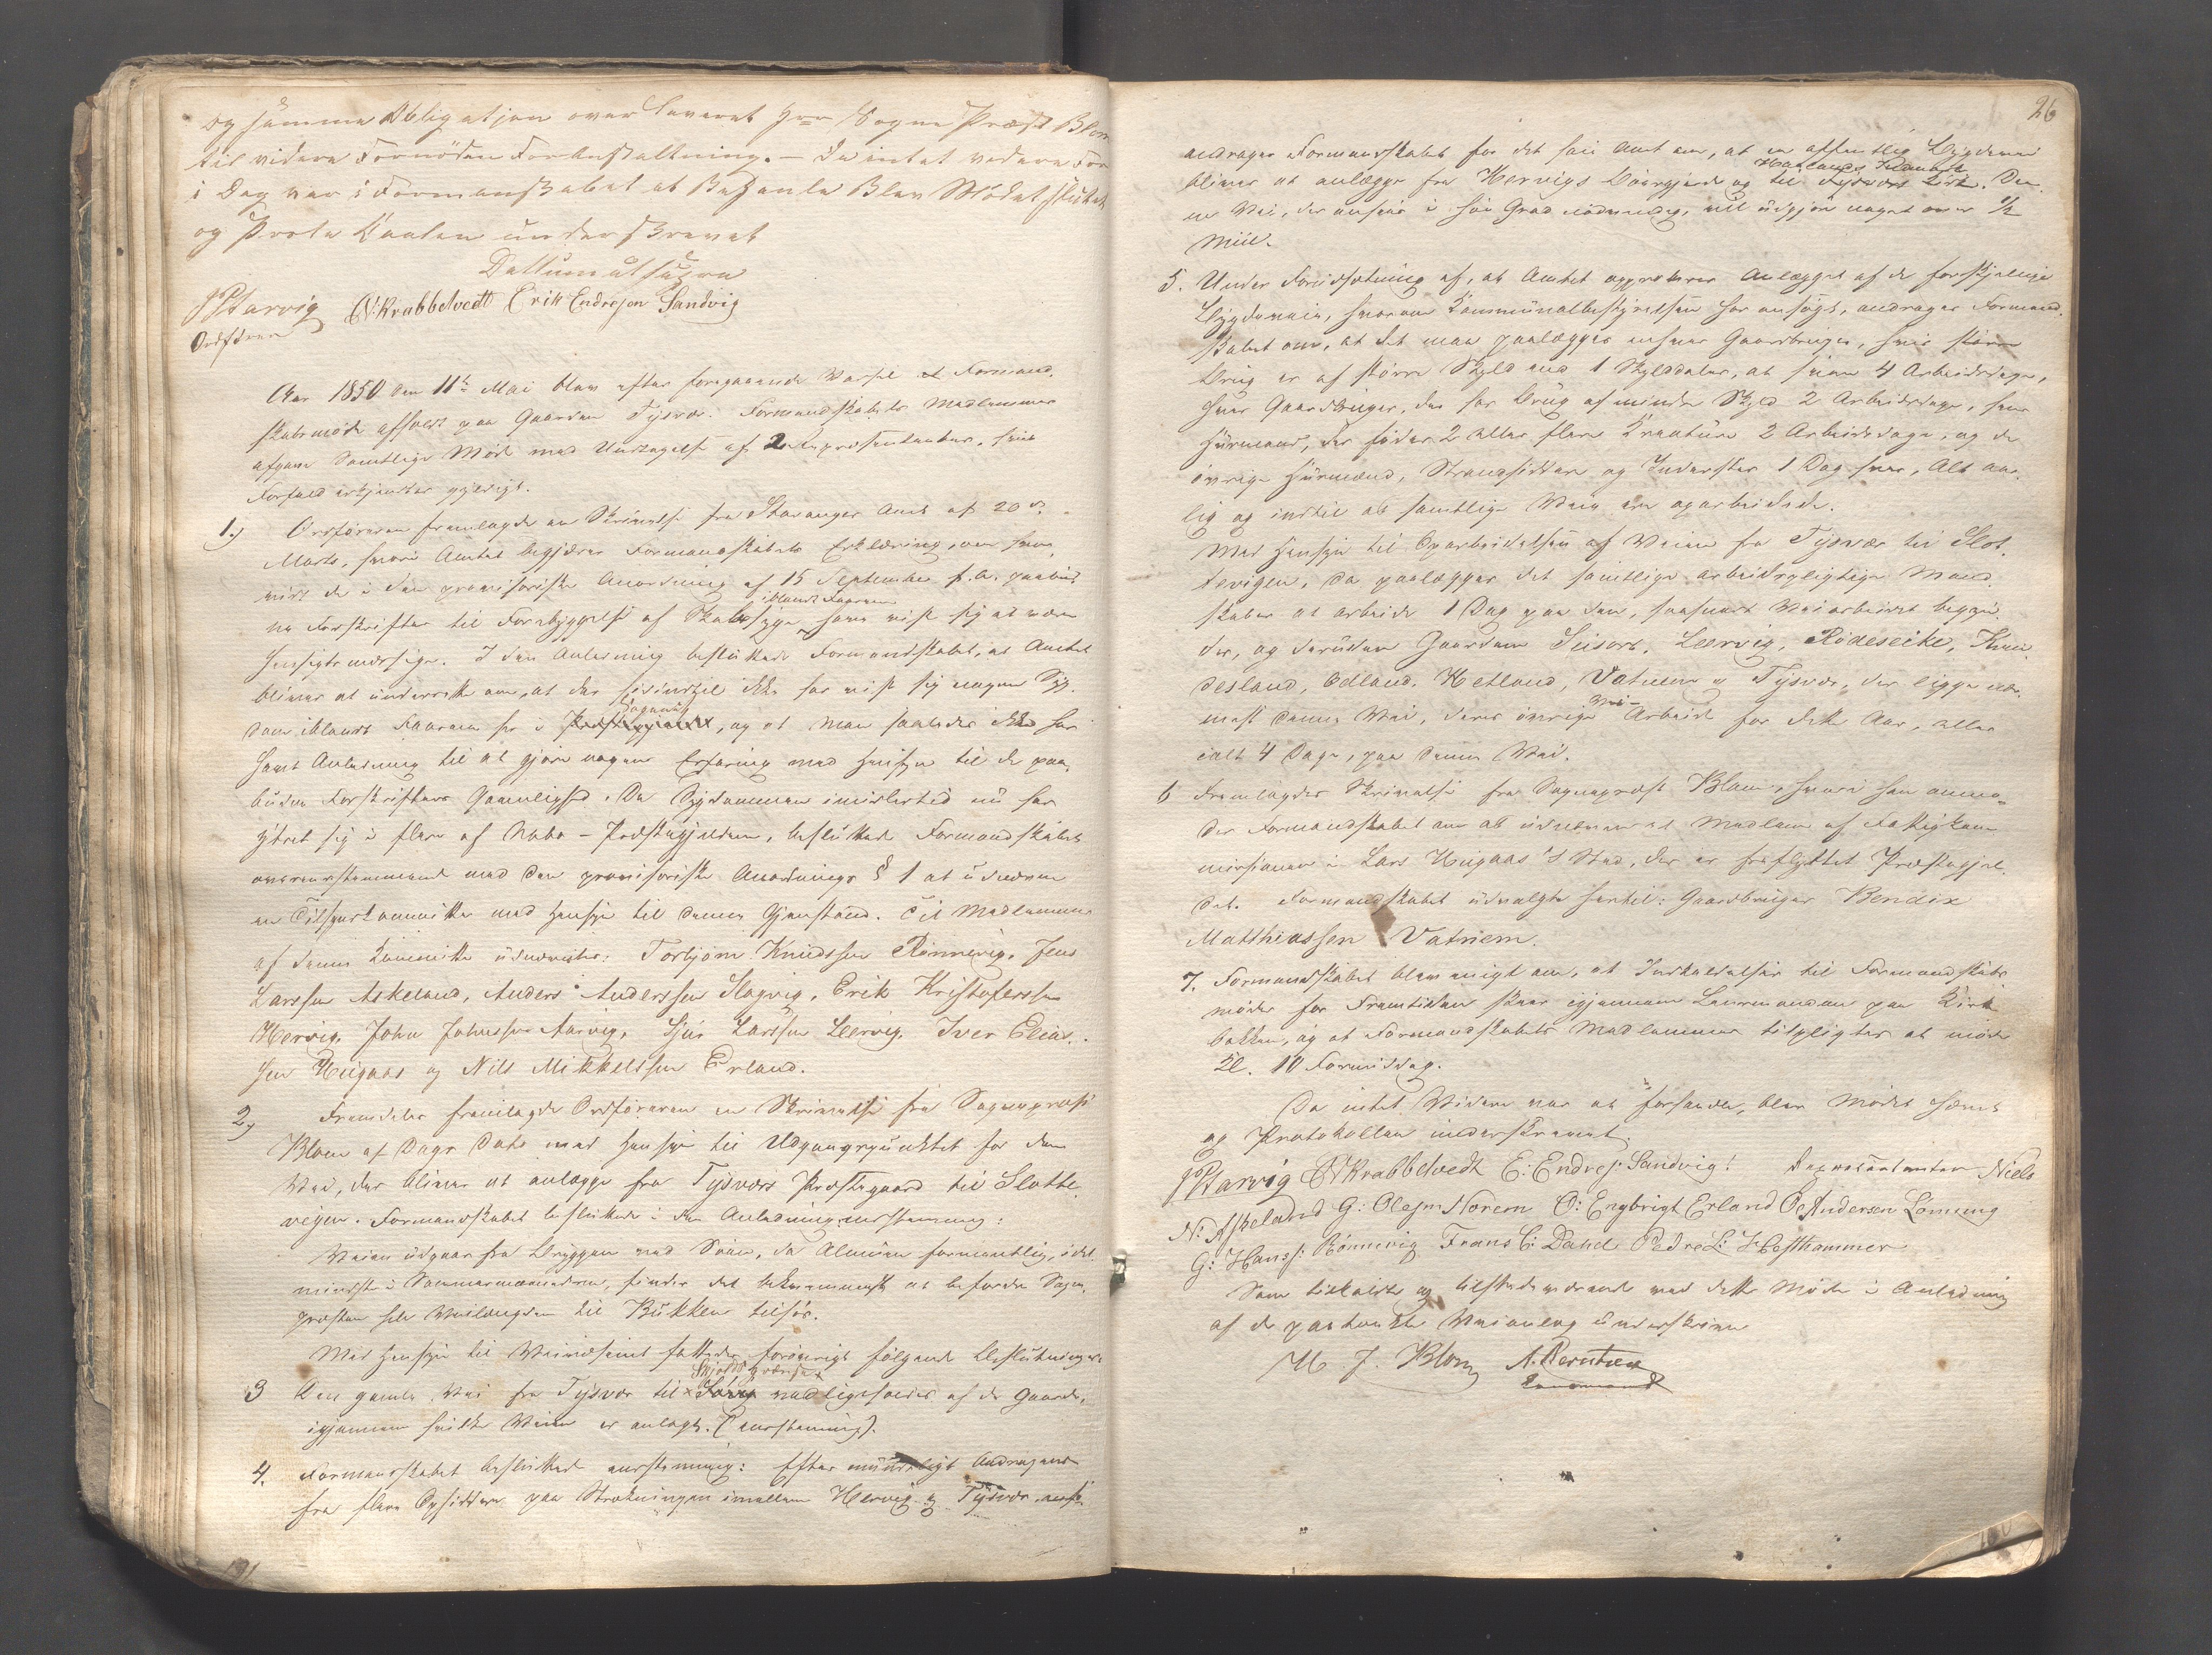 og samme Obligatjon over Leveret Hrr Sogne Præst Blom
til videre Fornöden Foranstaltning. – Da intet vedere For
i Dag var i Formanskabet at Behanle Blev Mödet slutet
og Proto Kaalen underskrevet
Dattum ut supra
JP Harvig NKrabbetvedt Erik Endresen Sandvig
Ordförer
Aar 1850 den 11te Mai blev efter foregaaende Varsel et Formand-
skabsmöde afholdt paa Gaarden Tysvær. Formandskabets Medlemmer
afgave samtlige Möde med Undtagelse af 2 Repræsentanter, hvis
Forfald erkjendtes gyldigt.
1.) Ordföreren fremlagde en Skrivelse fra Stavanger Amt af 20 d.
Marts, hvori Amtet begjærer Formandskabets Erklæring, om hvor
vidt de i den provisoriske Anordning af 15 September f. A. paabud
ne Forskrifter til Forebyggelse af Skabsyge iblandt Faarene have vist sig at være
hensigtsmæssige. I den Anledning besluttede Formandskabet, at Amtet
bliver at underrette om, at der hidindtil ikke har vist sig nogen Syg-
dom iblandt Faarene her i Sognet, og at man saaledes ikke har
havt Anledning til at gjöre nogen Erfaring med Hensyn til de paa-
budne Forskrifters Gavnlighed. Da Sygdommen imidlertid nu har
ytret sig i flere af Nabo-Præstegjeldene, besluttede Formandskabet
overensstemmende med den provisoriske Anordnings § 1 at udnævne
en Tilsynskommitte med Hensyn til denne Gjenstand. Til Medlemmer
af denne Kommitte udnævntes: Torbjörn Knudssen Rönnevig, Jens
Larssen Askeland, Anders Anderssen Slogvig, Erik Kristoferssen
Hervig, John Johnssen Aarvig, Sjur Larssen Leervig, Iver Elias-
sen Huigaas og Nils Mikkelssen Erland.
2.) Fremdeles fremlagde Ordföreren en Skrivelse fra Sognepræst
Blom af Dags Dato med Hensyn til Udgangspunktet for den
Vei, der bliver at anlægge fra Tysvær Præstegaard til Slotte-
vigen. Formandskabet besluttede i den Anledning eenstemmig:
Veien udgaaer fra Bryggen ved Söen, da Almuen formentlig, i det
mindste i Sommermaanederne, finder det bekvemmest at befordre Sogne-
præsten hele Veilængden til Bukken tilsös.
Med Hensyn til Veivæsenet fattedes forövrigt fölgende Beslutninger:
3 Den gamle Vei fra Tysvær til Skjolds Grændse vedligeholdes af de Gaarde,
igjennem hvilke Veien er anlagt. (eenstemmig).
4. Formandskabet besluttede eenstemmig: Efter mundtligt Andragende
fra flere Opsiddere paa Strækningen imellem Hervig og Tysvær ansö-
26
andrager Formandskabet for det höie Amt om, at en offentlig Bygdevei
bliver at anlægge fra Hervigs Böergjerde og til Tysvær Kirke. Den-
ne Vei, der ansees i höi Grad nödvendig, vil udgjöre noget over 1/2
Miil.
5. Under Forudsætning af, at Amtet approberer Anlægget af de forskjellige
Bygdeveie, hvorom Kommunalbestyrelsen har ansögt, andrager Formand-
skabet om, at det maa paalægges enhver Gaardbruger, hvis större
Brug er af större Skyld end 1 Skylddaler, at have 4 Arbeidsdage,
hver Gaardbruger, der har Brug af mindre Skyld 2 Arbeidsdage, hver
Huusmand, der föder 2 eller flere Kreature 2 Arbeidsdage, og de
övrige Huusmænd, Strandsiddere og Inderster 1 Dag hver, Alt aar-
lig og indtil at samtlige Veie ere oparbeidede.
Med Hensyn til Oparbeidelsen af Veien fra Tysvær til Slot-
tevigen, da paalægges det samtlige arbeidspligtige Mand-
skaber at arbeide 1 Dag paa den, saasnart Veiarbeidet begyn-
der, og desuden Gaardene Seisors, Leervig, Rödeseike, Knu-
desland, Ödland, Hetland, Vatnem og Tysvær, der ligge nær-
mest denne Vei, deres övrige Vei-Arbeide for dette Aar, eller
ialt 4 Dage, paa denne Vei.
6 Fremlagdes Skrivelse fra Sognepræst Blom, hvori han anmo-
der Formandskabet om at udnævne et Medlem af Fattigkom-
missionen i Lars Huigaas's Sted, der er fraflyttet Præstegjel-
det. Formandskabet udvalgte hertil: Gaardbruger Bendix
Matthiassen Vatnem.
7. Formandskabet blev enigt om, at Indkaldelser til Formandskabs-
möder for Fremtiden skeer igjennem Lensmanden paa Kirke-
bakken, og at Formandskabets Medlemmer tilpligtes at möde
Kl. 10 Formiddag.
Da intet Videre var at forhandle, blev Mödet hævet
og Protokollen underskrevet.
JP Harvig NKrabbetvedt E: Endres: Sandvig: Repræsentanter Niels
N: Askeland G: Olesen Norem O: Engbrigt Erland O Andersen Lönning
G: Hans: Rönnevig Frans C: Dahle Pedre L: Hosthammer
Som tilkaldte og tilstedeværende ved dette Möde i Anledning
af de paatænkte Veianlæg underskrive
M J. Blom A. Berntsen
Lensmand